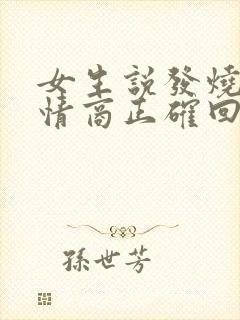 女生説發燒
情商正確回
孫世芳